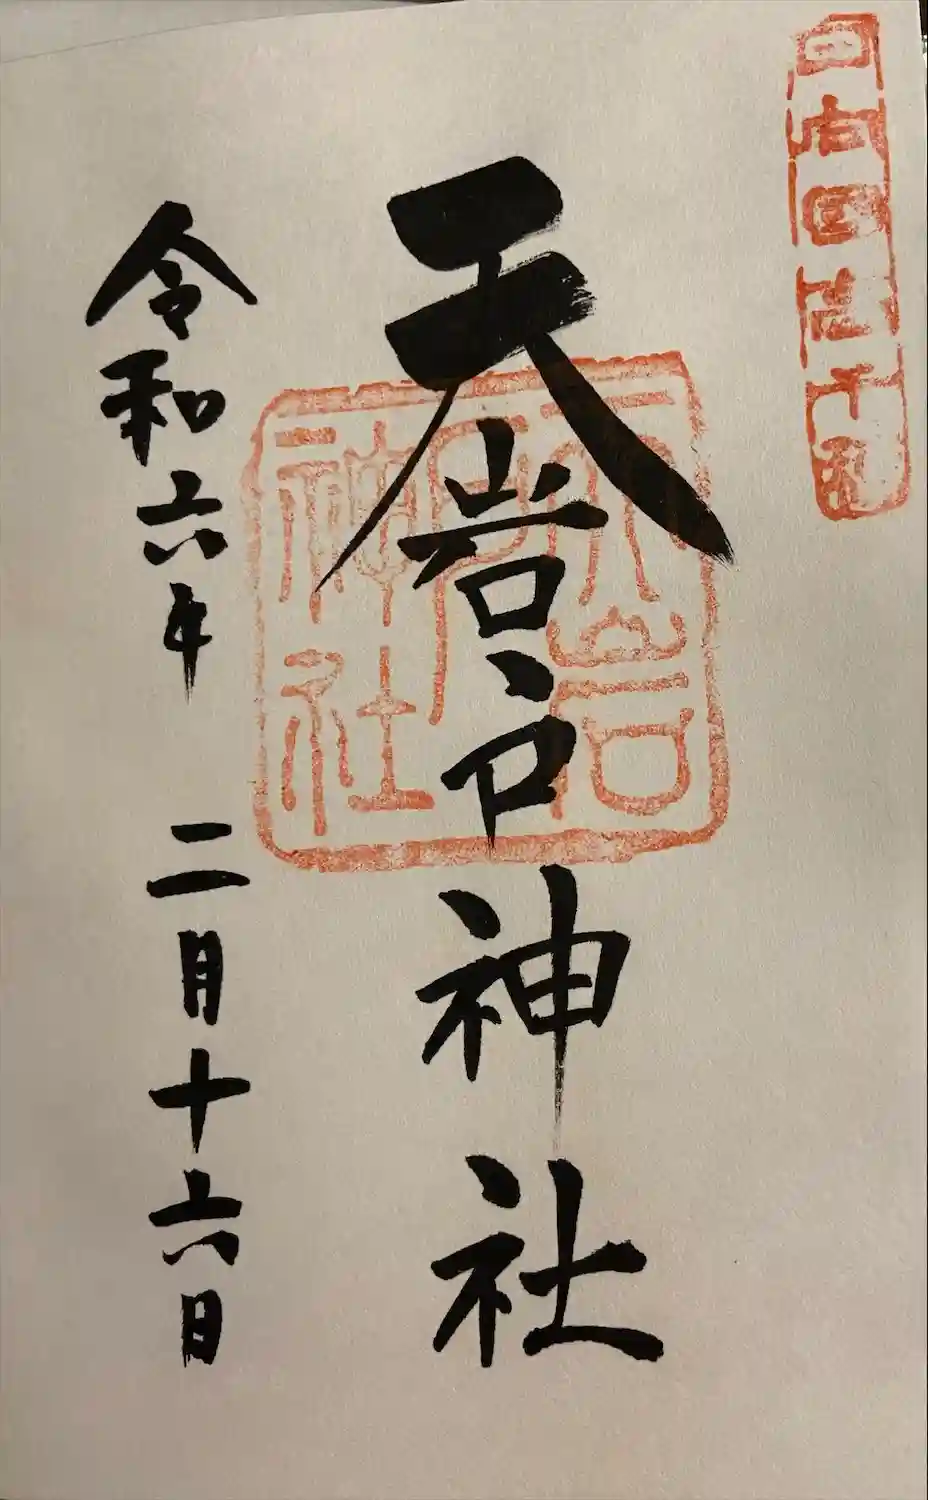 日向国高千穂
天岩戸神社
天岩
戸
神社
令和六年 二月十六日